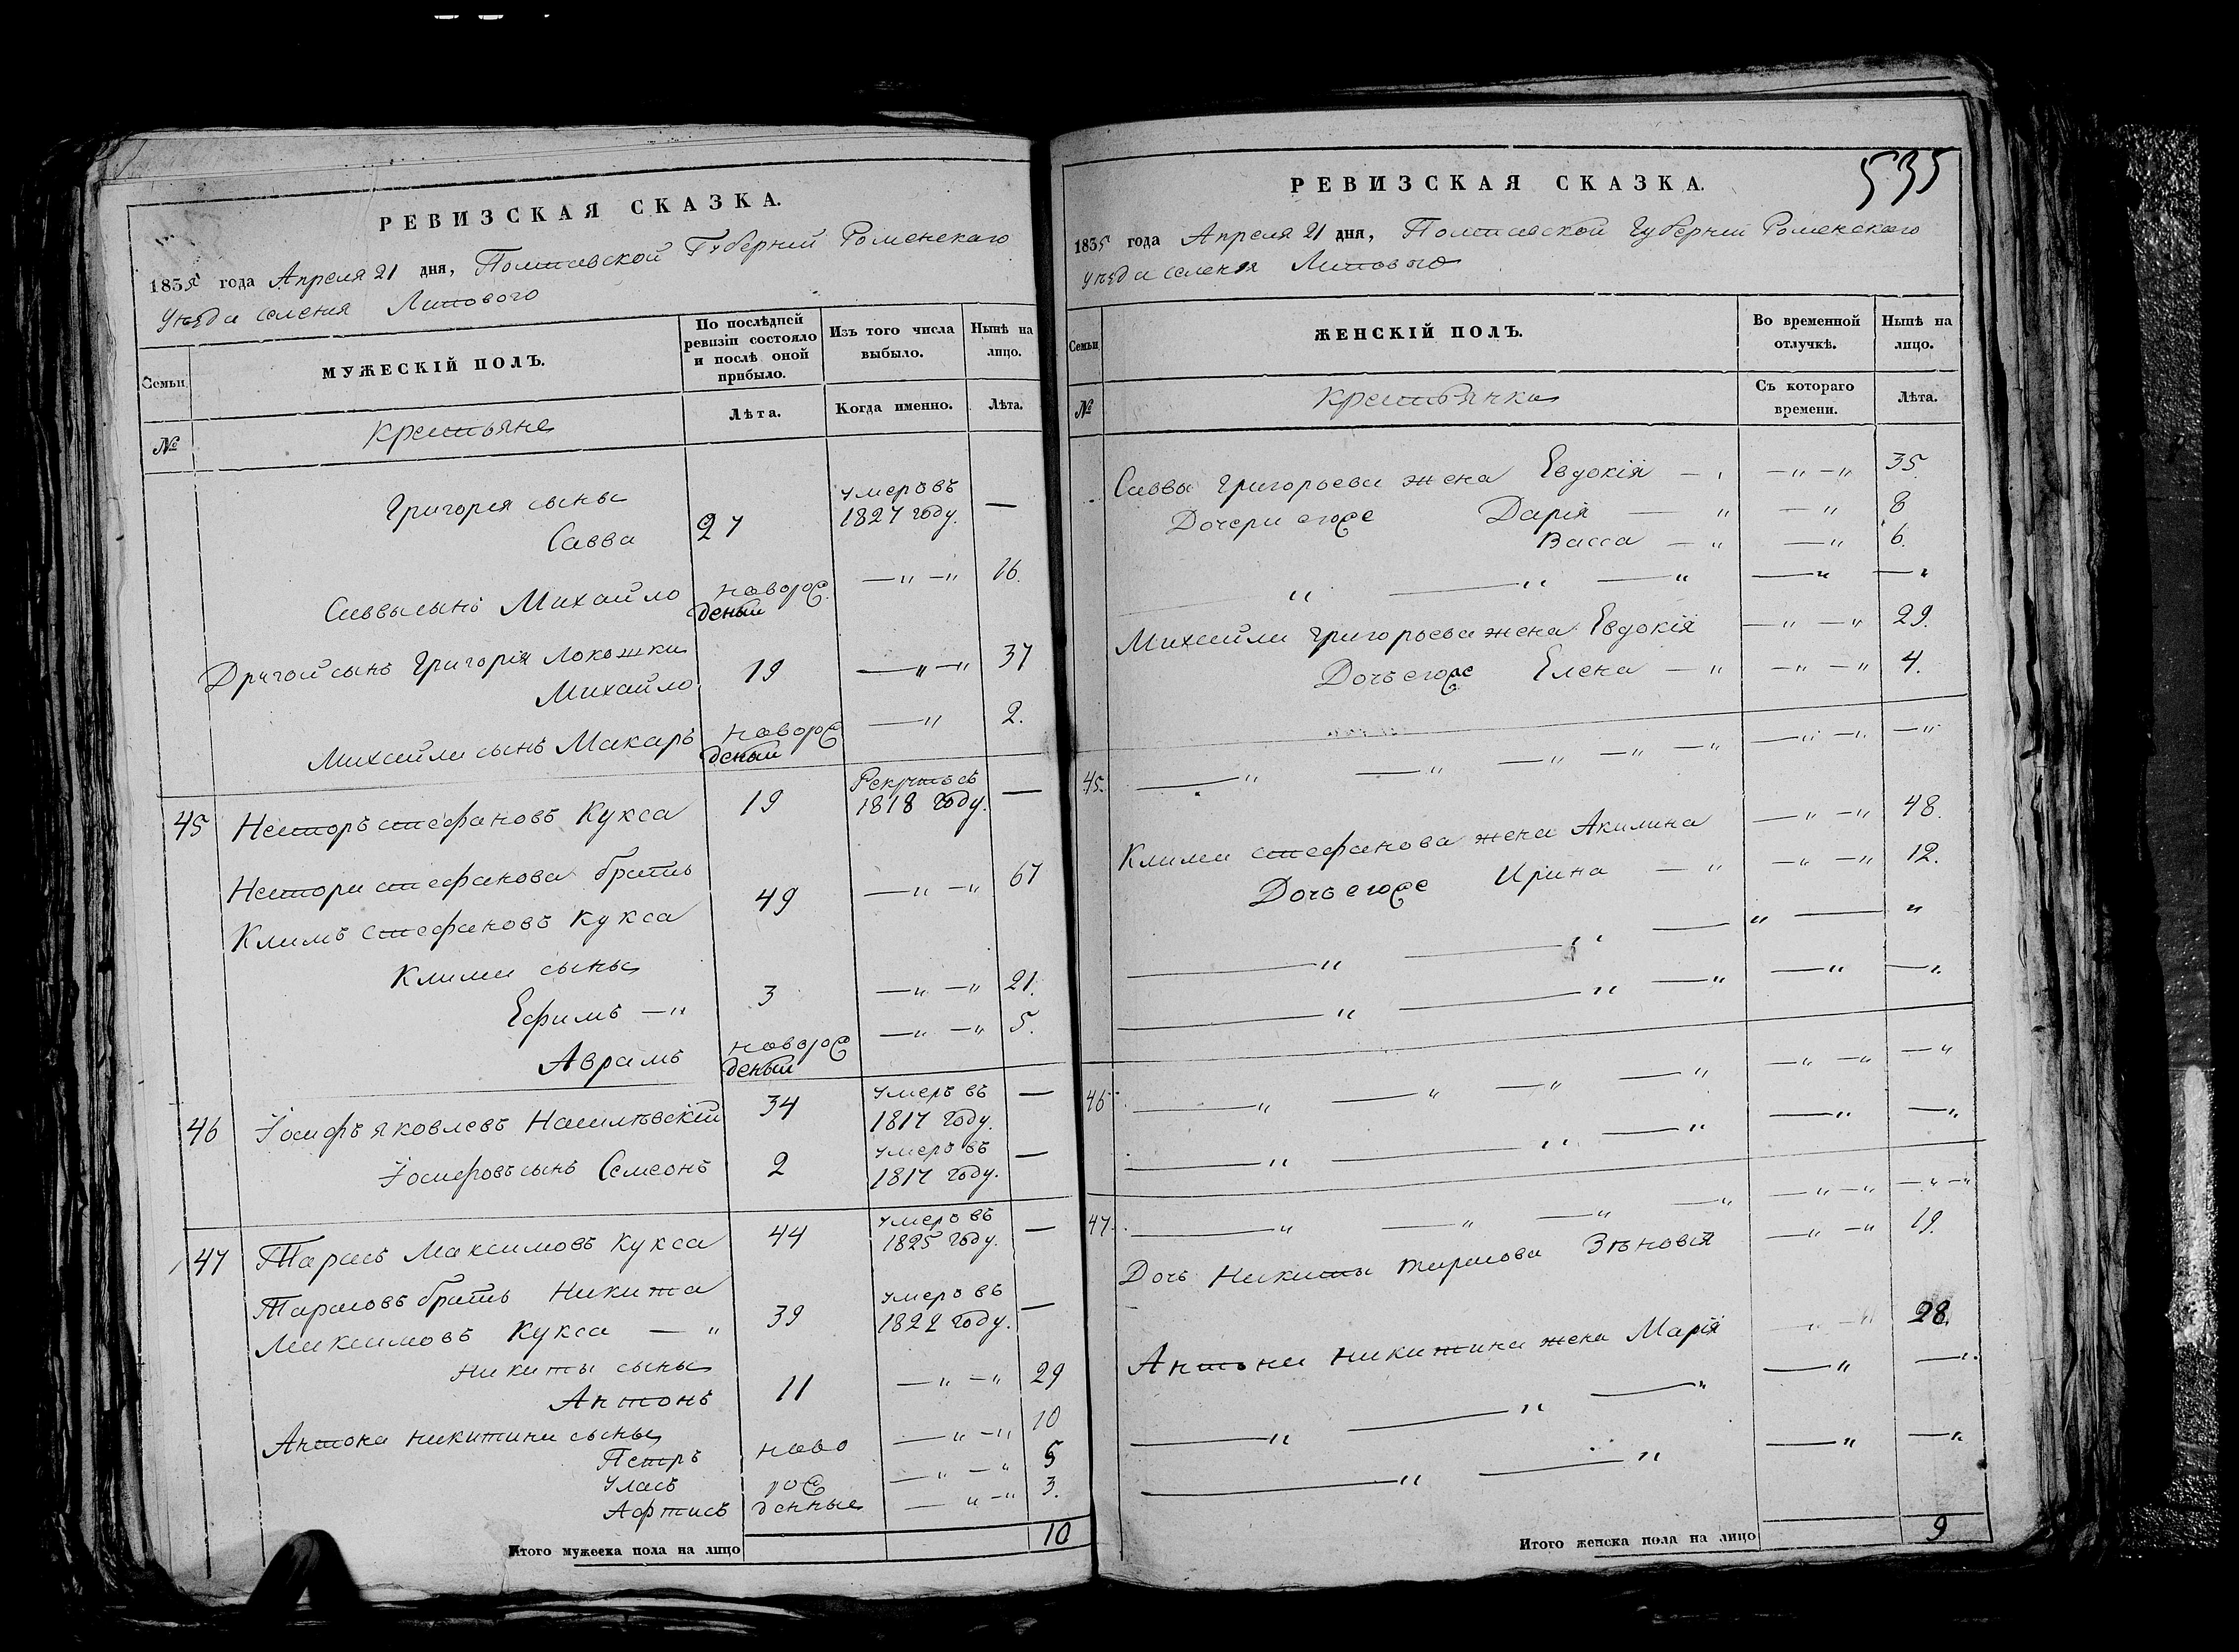 РЕВИЗСКАЯ СКАЗКА.
1835 года Апреля 21 дня, Полтавской Губернии Роменскаго
Уѣзда селения Липового
Семьи
МУЖЕСКІЙ ПОЛЪ.
По послѣдней ревизіи состояло и послѣ оной прибыло.
Изъ того числа выбыло.
Нынѣ на лицо.
№
крестьяне
Лѣта.
Когда именно.
Лѣта.
Григорея сыны
Савва 27 умеръ въ 1827 году. —
Саввы сынъ Михайло новорожденый — " — " 16.
Другой сынъ Григорія Локошки
Михайло 19 — " — " 37
Михайли сынъ Макаръ новорожденый — " 2.
45 Несторъ Стефановъ Кукса 19 Рекрутъ съ 1818 году. —
Нестора Стефанова братъ
Климъ Стефановъ Кукса 49 — " — " 67
Клима сыны
Ефимъ — " 3 — " — " 21.
Аврамъ новорожденый — " — " 5.
46 Іосифъ Яковлевъ 34 умеръ въ 1817 году. —
Іосифовъ сынъ Семеонъ 2 умеръ въ 1817 году. —
47 Тарасъ Максимовъ Кукса 44 умеръ въ 1825 году. —
Тарасовъ братъ Никита
Максимовъ Кукса — " 39 умеръ въ 1822 году. —
Никиты сыны
Антонъ 11 — " — " 29
Антона Никитина сыны
Петръ ново — " — " 10
Уласъ рож — " — " 5
Афтисъ денные — " — " 3.
Итого мужеска пола на лицо 10
535
РЕВИЗСКАЯ СКАЗКА.
1835 года Апреля 21 дня, Полтавской Губернии Роменскаго
Уѣзда селеня Липового
Семьи
ЖЕНСКІЙ ПОЛЪ.
Во временной отлучкѣ.
Нынѣ на лицо.
№
крестьянки
Съ котораго времени.
Лѣта.
Саввы Григорьева жена Евдокія — " — " — " 35.
Дочери егоже Дарія — " — " 8
Васса — " — " 6.
" — " — " — " — "
Михайли Григорьева жена Евдокія — " — " 29.
Дочь егоже Елена — " — " — " 4.
45. — " — " — " — " — " — " — "
Клима Стефанова жена Акилина — " — " 48.
Дочь егоже Ирина — " — " — " 12.
— " — " — " — "
— " — " — " — " — "
46 — " — " — " — " — " — "
— " — " — " — " — "
47. — " — " — " — " — " — " — " — "
Дочь Никиты Тарасова Зѣновія — " — " 19.
Антона Никитина жена Марія — " 28.
— " — " — " — " —
— " — " — " — "
Итого женска пола на лицо 9